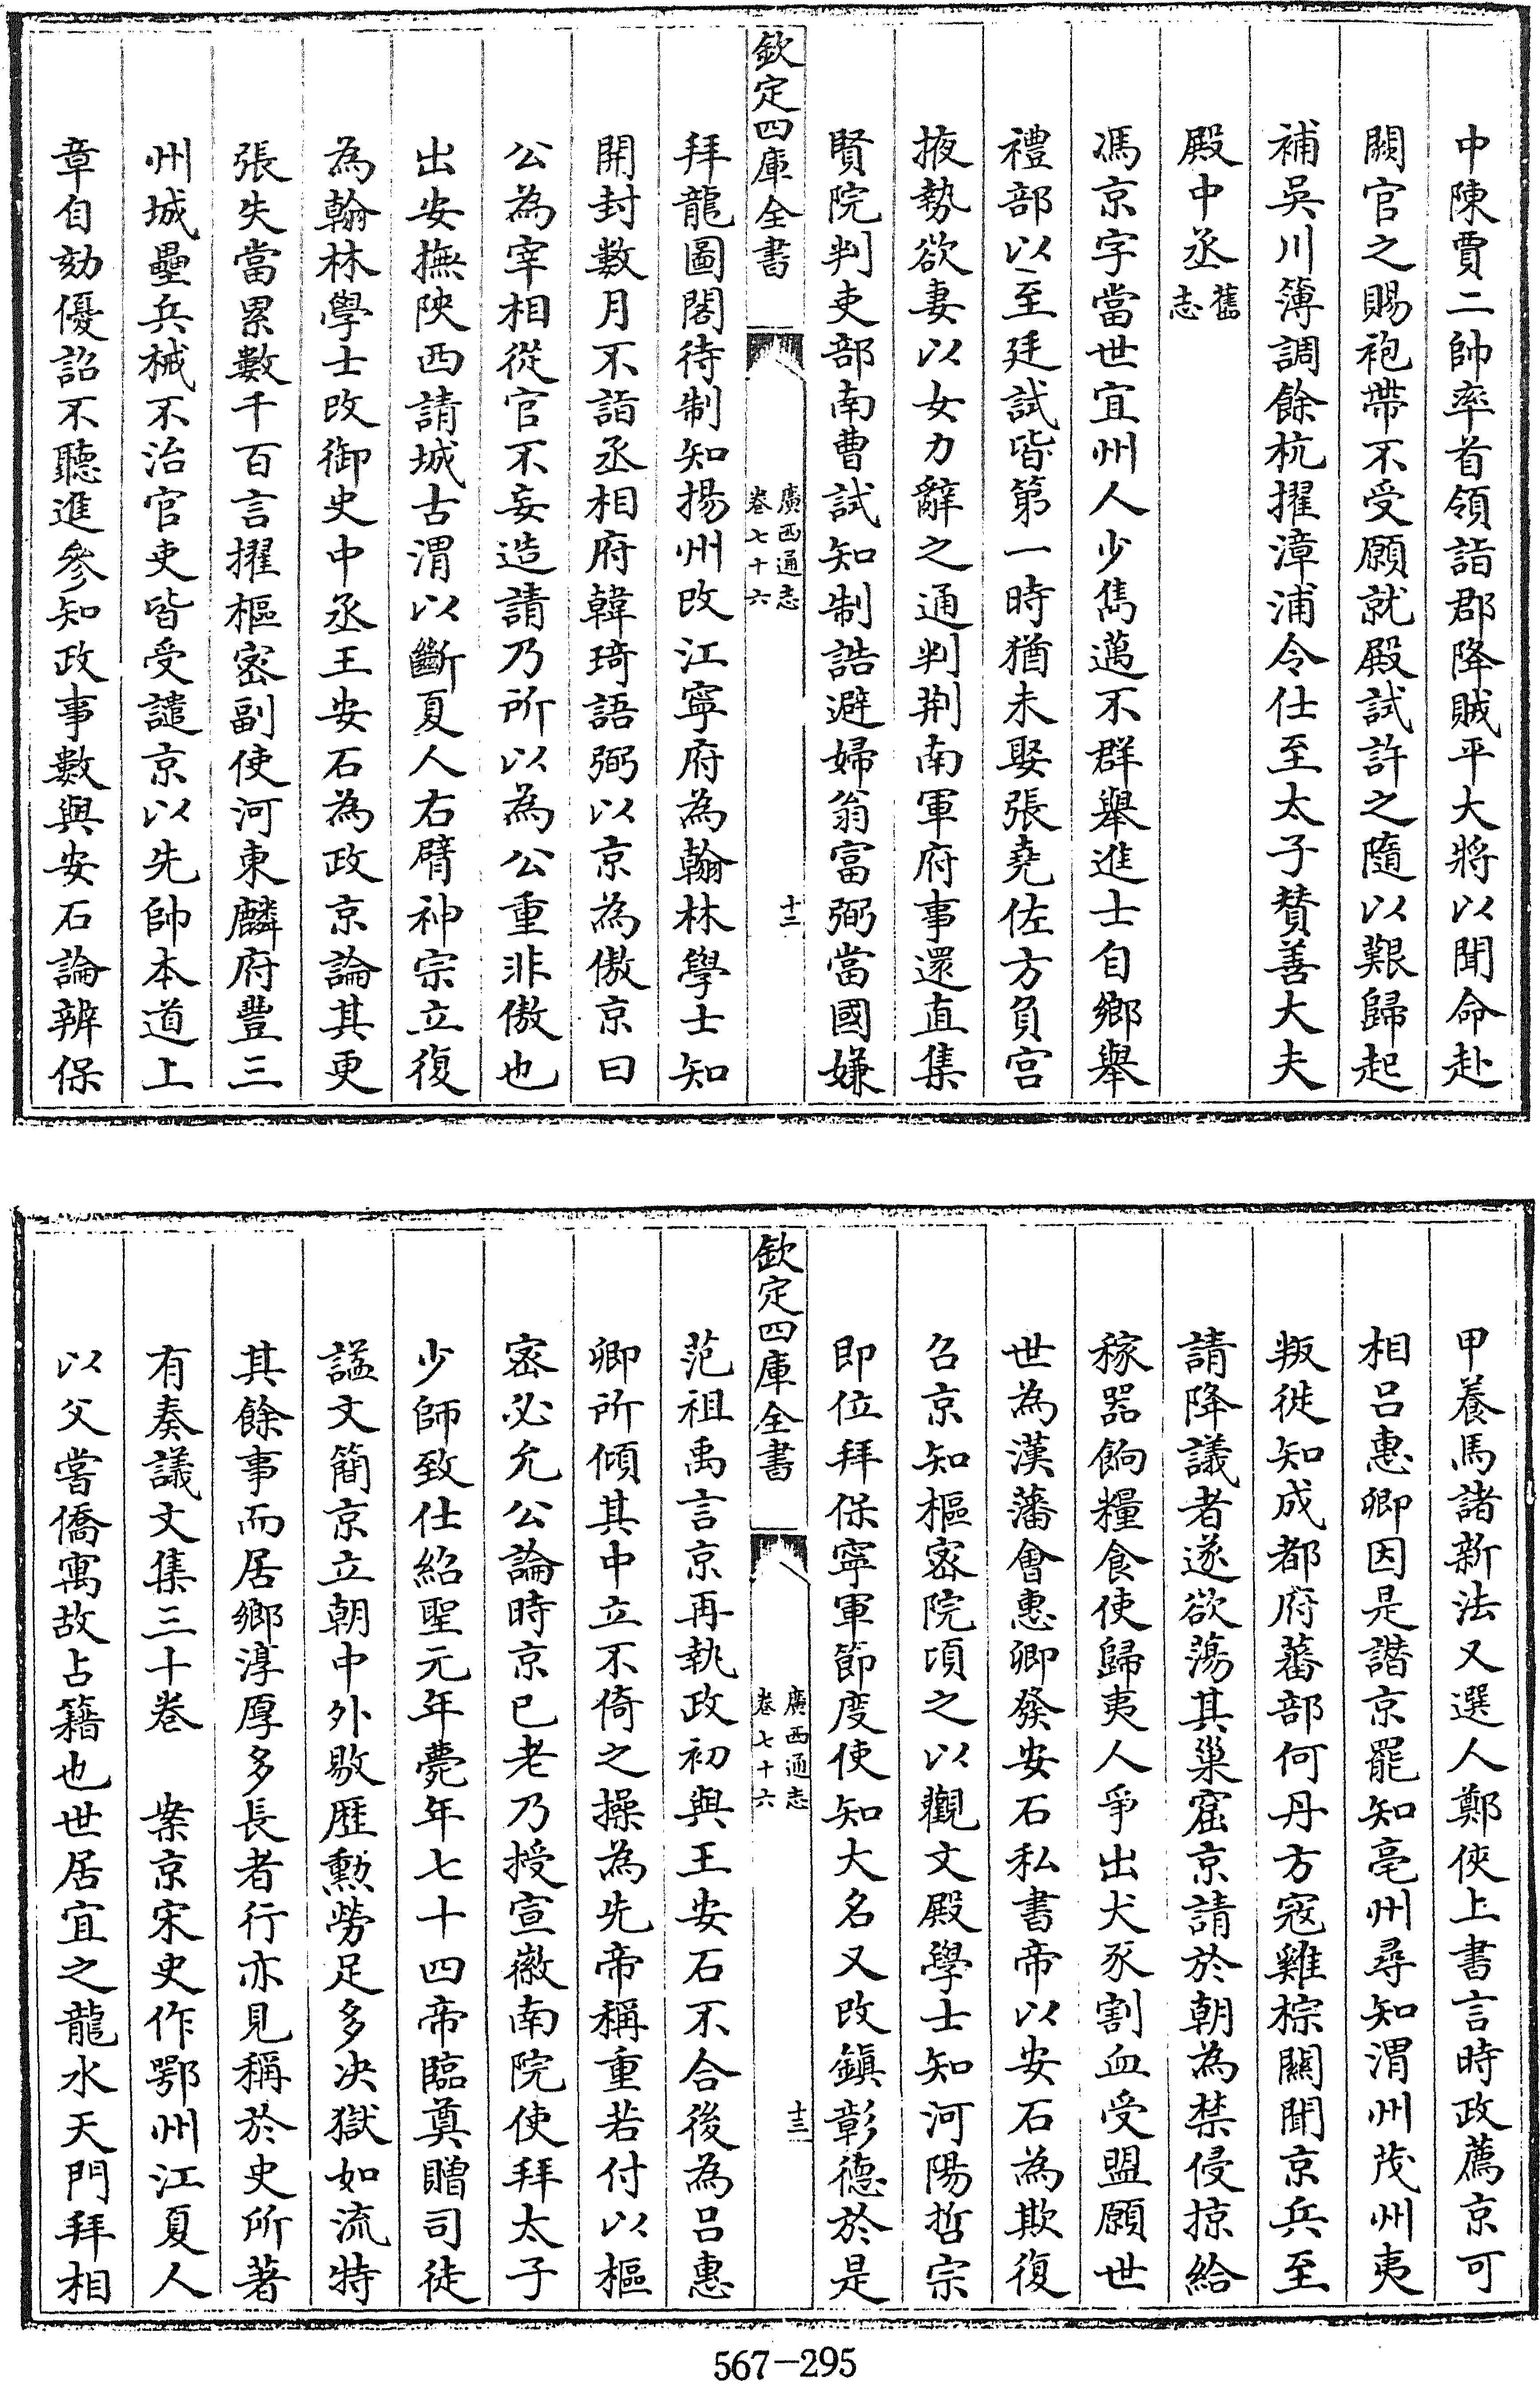 中陳賈二帥率首領詣郡降賊平大將以聞命赴
闕官之賜袍帶不受願就殿試許之隨以艱歸起
補吳川簿調餘杭擢漳浦令仕至太子賛善大夫
殿中丞舊志
馮京字當世宜州人少雋邁不群舉進士自鄉舉
禮部以至廷試皆第一時猶未娶張堯佐方負宮
掖勢欲妻以女力辭之通判荆南軍府事還直集
賢院判吏部南曹試知制誥避婦翁富弼當國嫌
欽定四庫全書
廣西通志
卷七十六
十二
拜龍圖閣待制知揚州改江寧府為翰林學士知
開封數月不詣丞相府韓琦語弼以京為傲京曰
公為宰相從官不妄造請乃所以為公重非傲也
出安撫陜西請城古渭以斷夏人右臂神宗立復
為翰林學士改御史中丞王安石為政京論其更
張失當累數千百言擢樞密副使河東麟府豐三
州城壘兵械不治官吏皆受譴京以先帥本道上
章自劾優詔不聽進參知政事數與安石論辨保
甲養馬諸新法又選人鄭俠上書言時政薦京可
相呂惠卿因是譖京罷知亳州尋知渭州茂州夷
叛徙知成都府蕃部何丹方寇雞棕關聞京兵至
請降議者遂欲蕩其巢窟京請於朝為禁侵掠給
稼器餉糧食使歸夷人爭出犬豕割血受盟願世
世為漢藩會惠卿發安石私書帝以安石為欺復
召京知樞密院頃之以觀文殿學士知河陽哲宗
即位拜保寧軍節度使知大名又改鎮彰德於是
欽定四庫全書
廣西通志
卷七十六
十三
范祖禹言京再執政初與王安石不合後為呂惠
卿所傾其中立不倚之操為先帝稱重若付以樞
密必允公論時京已老乃授宣徽南院使拜太子
少師致仕紹聖元年薨年七十四帝臨奠贈司徒
諡文簡京立朝中外敭歷勲勞足多决獄如流特
其餘事而居鄉淳厚多長者行亦見稱於史所著
有奏議文集三十卷　案京宋史作鄂州江夏人
以父嘗僑寓故占籍也世居宜之龍水天門拜相
567-295